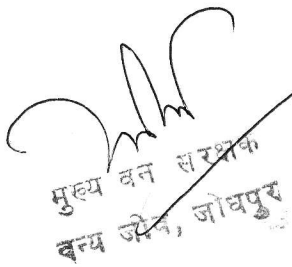 मुख्य वन संरक्षक
वन्य जीव, जोधपुर